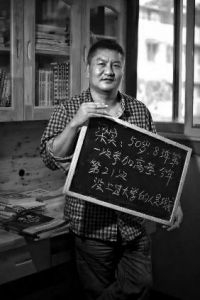 梁实:50岁 83年第
一次参加高考 今年
第21次
没上过大学的人是